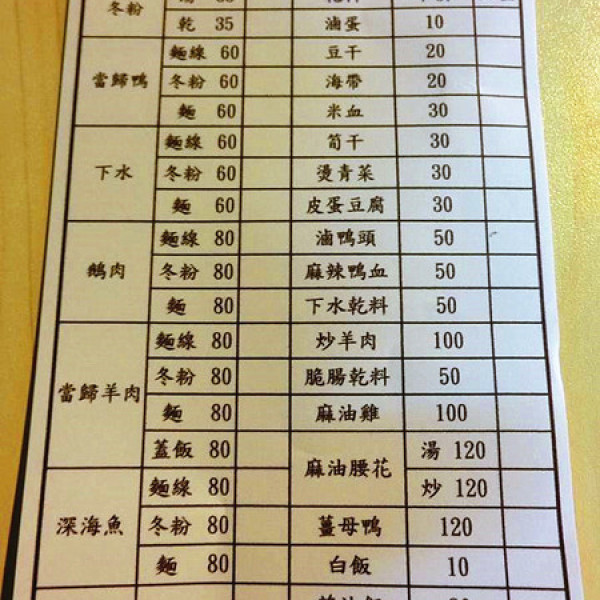 冬粉
乾 35 滷蛋 10
當歸鴨
麵線 60 豆干 20
冬粉 60 海帶 20
麵 60 米血 30
下水
麵線 60 筍干 30
冬粉 60 燙青菜 30
麵 60 皮蛋豆腐 30
鵝肉
麵線 80 滷鴨頭 50
冬粉 80 麻辣鴨血 50
麵 80 下水乾料 50
當歸羊肉
麵線 80 炒羊肉 100
冬粉 80 脆腸乾料 50
麵 80 麻油雞 100
蓋飯 80 麻油腰花 湯 120
深海魚
麵線 80 炒 120
冬粉 80 薑母鴨 120
麵 80 白飯 10